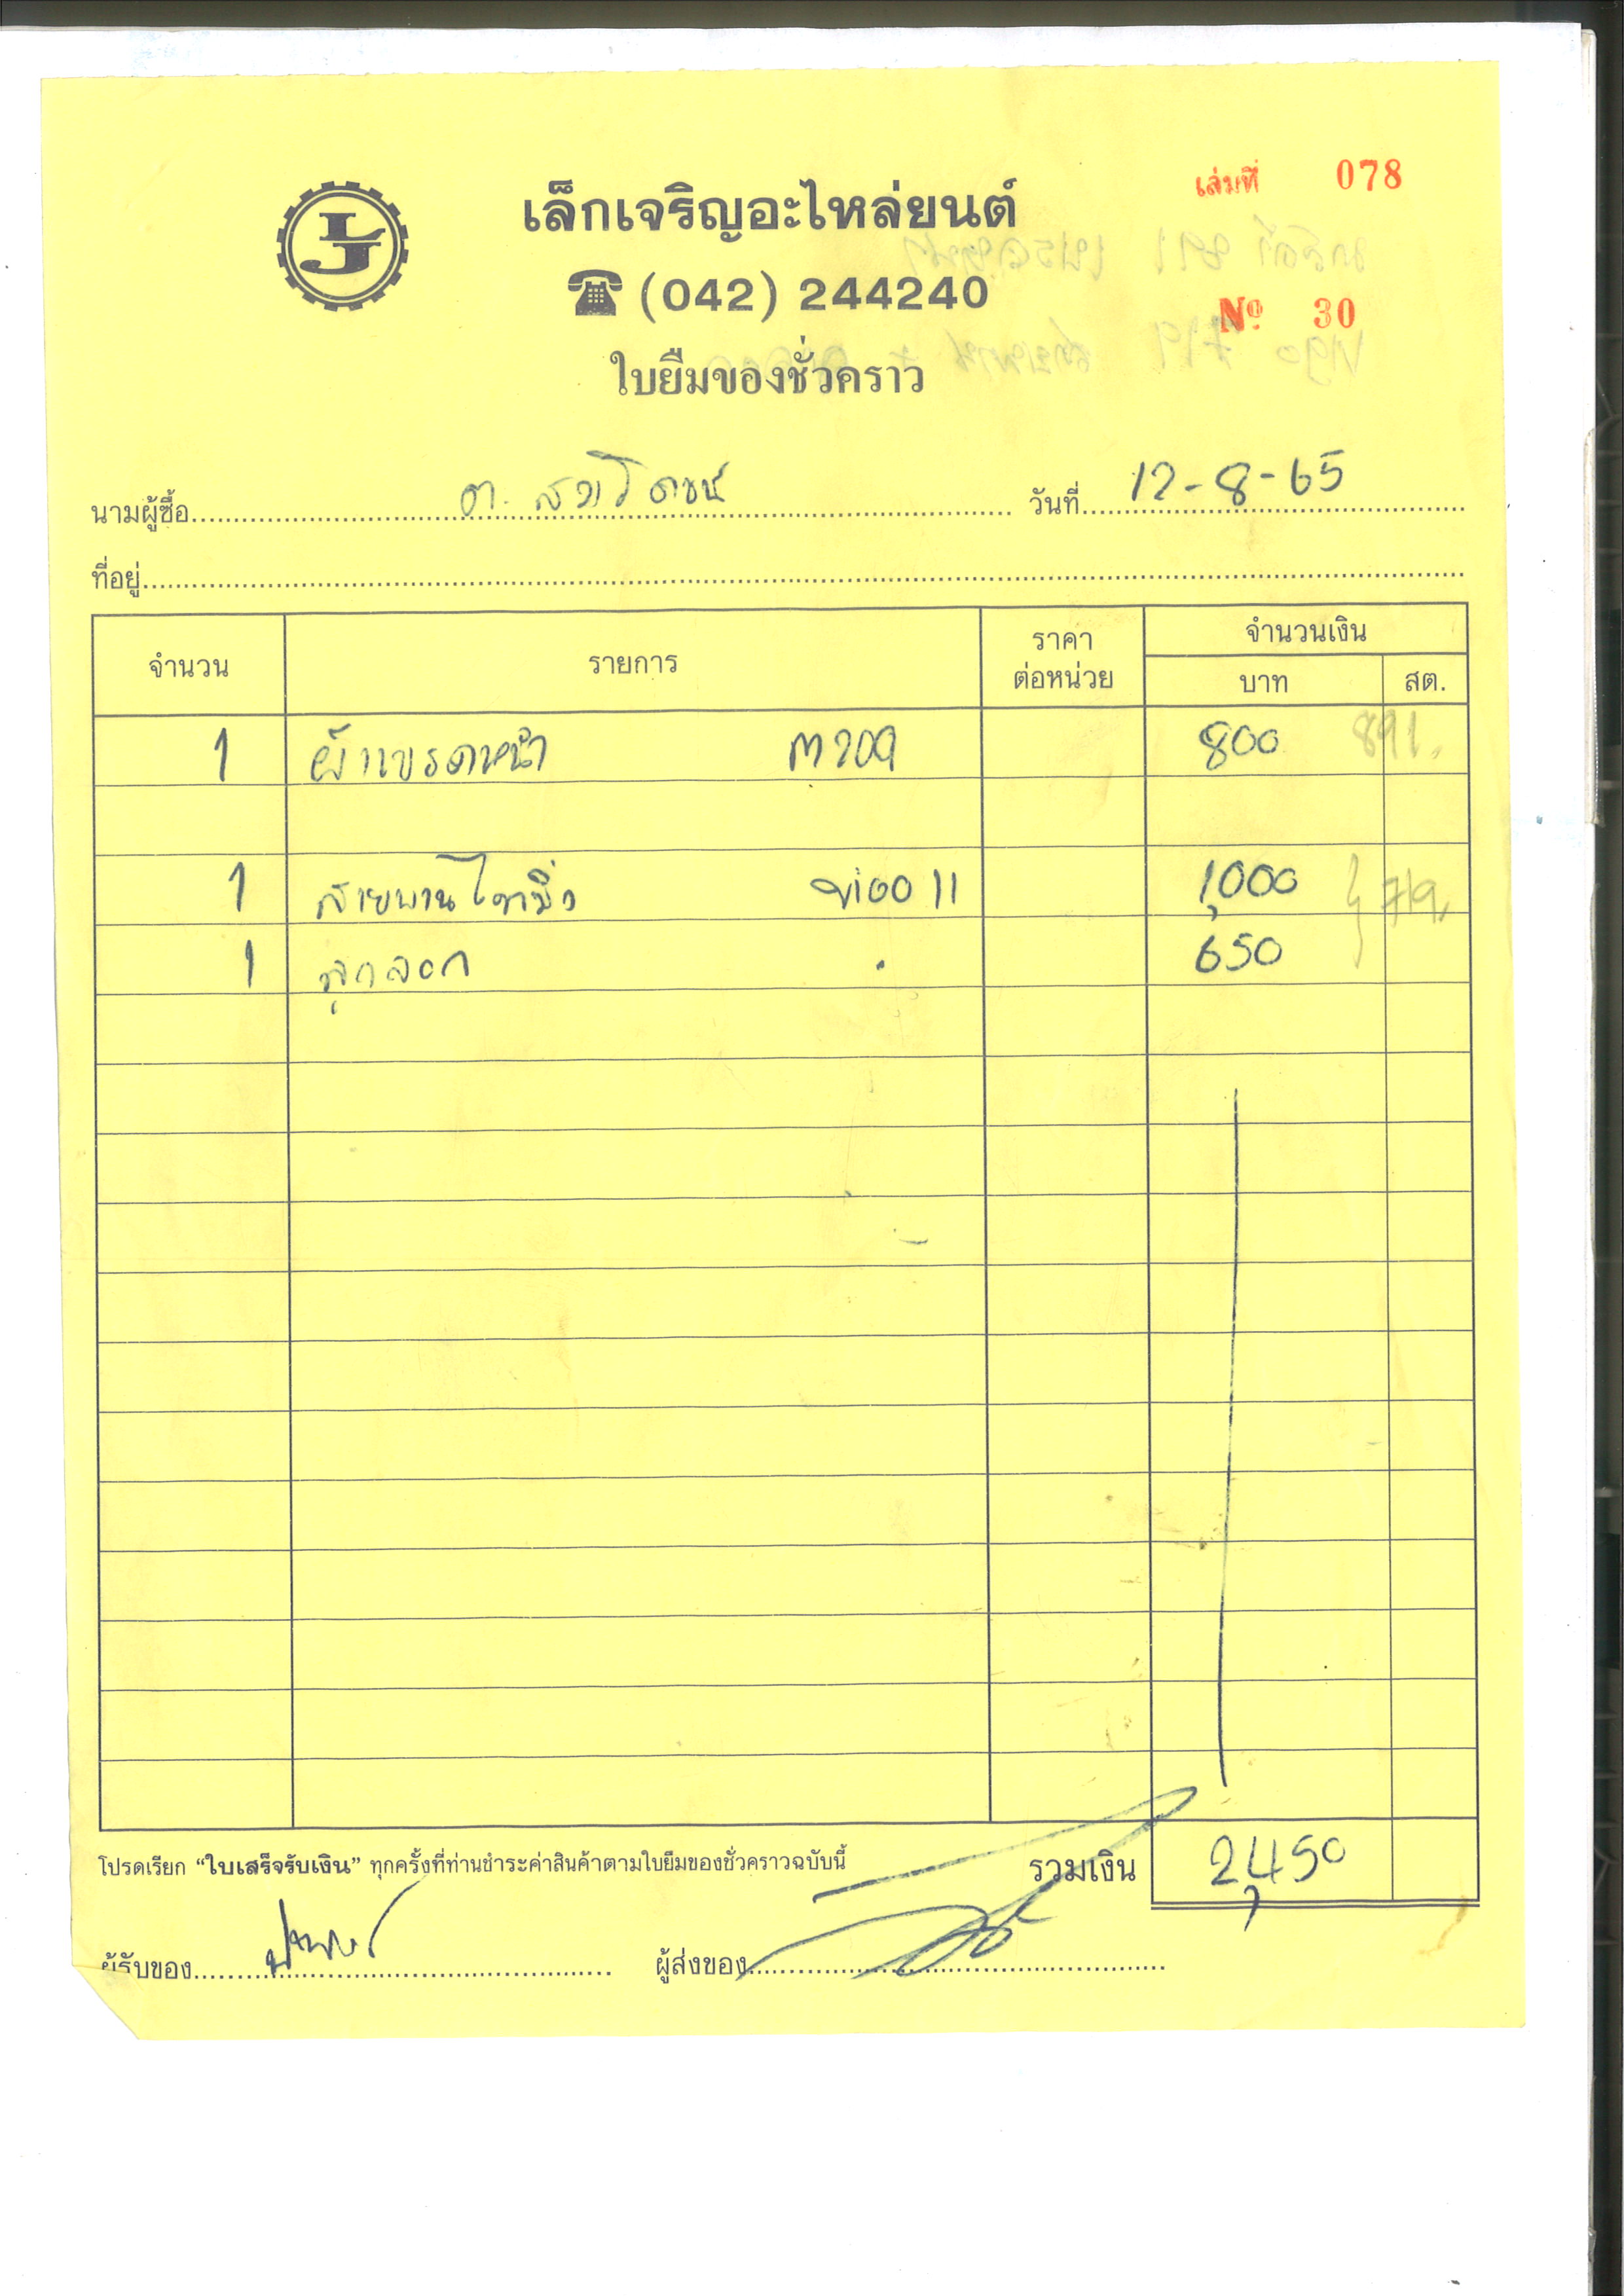 เล่มที่ 078
เล็กเจริญอะไหล่ยนต์
(042) 244240
Nº 30
ใบยืมของชั่วคราว
นามผู้ซื้อ วันที่ 12-8-65
ที่อยู่
จำนวน รายการ ราคาต่อหน่วย จำนวนเงิน
บาท สต.
1 ผ้าเบรคหน้า 800 891.
1 สายพานไทมิ่ง 1,000 719
1 ลูกลอก 650
โปรดเรียก “ใบเสร็จรับเงิน” ทุกครั้งที่ท่านชำระค่าสินค้าตามใบยืมของชั่วคราวฉบับนี้ รวมเงิน 2,450
ผู้รับของ ผู้ส่งของ